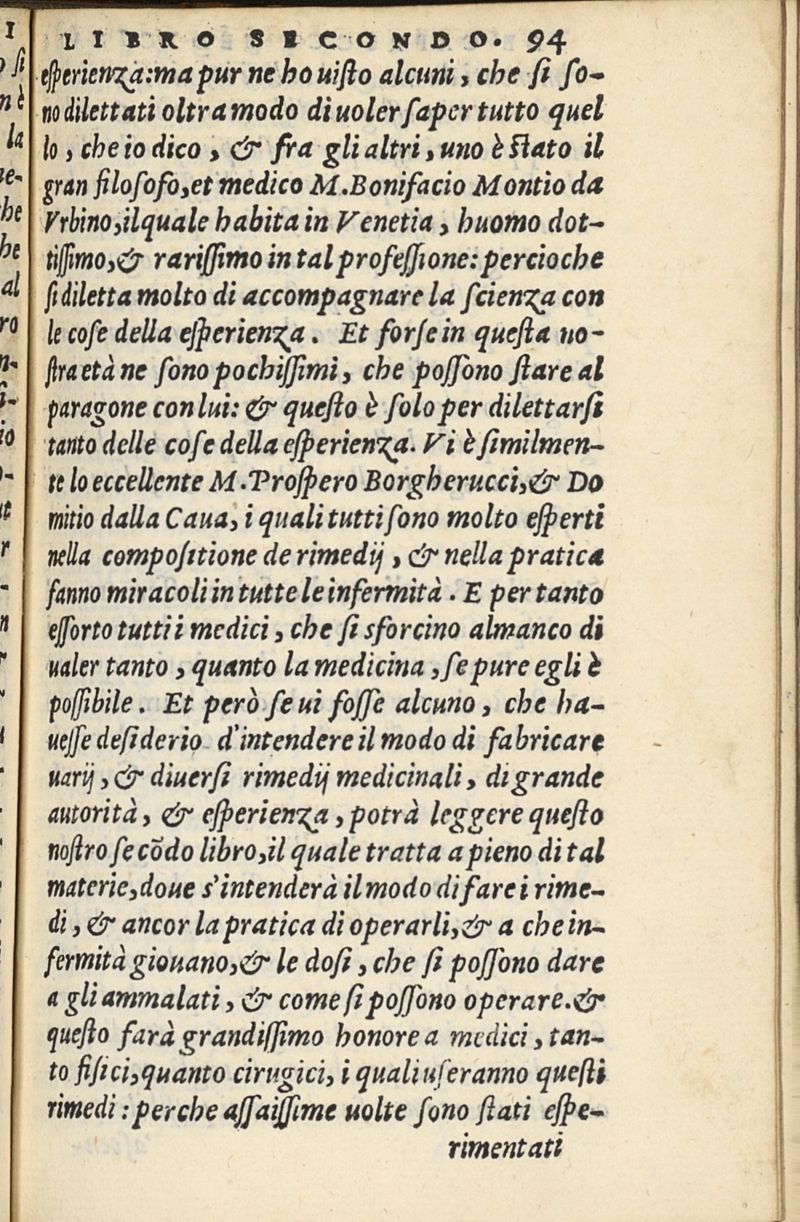 LIBRO SECONDO. 94
eſperienza:ma pur ne ho uiſto alcuni, che ſi ſo-
no dilettati oltra modo di uoler ſaper tutto quel
lo, che io dico, & fra gli altri, uno è ſtato il
gran filoſofo,et medico M.Bonifacio Montio da
Vrbino,ilquale habita in Venetia, huomo dot-
tiſſimo,& rariſſimo in tal profeſſione: percioche
ſi diletta molto di accompagnare la ſcienza con
le coſe della eſperienza. Et forſe in queſta no-
ſtra età ne ſono pochiſſimi, che poſſono ſtare al
paragone con lui: & queſto è ſolo per dilettarſi
tanto delle coſe della eſperienza. Vi è ſimilmen-
te lo eccellente M.Proſpero Borgherucci,& Do
mitio dalla Caua, i quali tutti ſono molto eſperti
nella compoſitione de rimedij, & nella pratica
fanno miracoli in tutte le infermità. E per tanto
eſſorto tutti i medici, che ſi sforcino almanco di
ualer tanto, quanto la medicina, ſe pure egli è
poſſibile. Et però ſe ui foſſe alcuno, che ha-
ueſſe deſiderio d'intendere il modo di fabricare
uarij, & diuerſi rimedij medicinali, di grande
autorità, & eſperienza, potrà leggere queſto
noſtro ſecõdo libro,il quale tratta a pieno di tal
materie,doue s'intenderà il modo di fare i rime-
di, & ancor la pratica di operarli,& a che in-
fermità giouano,& le doſi, che ſi poſſono dare
a gli ammalati, & come ſi poſſono operare.&
queſto farà grandiſſimo honore a medici, tan-
to fiſici,quanto cirugici, i quali uſeranno queſti
rimedi: perche aſſaiſſime uolte ſono ſtati eſpe-
rimentati